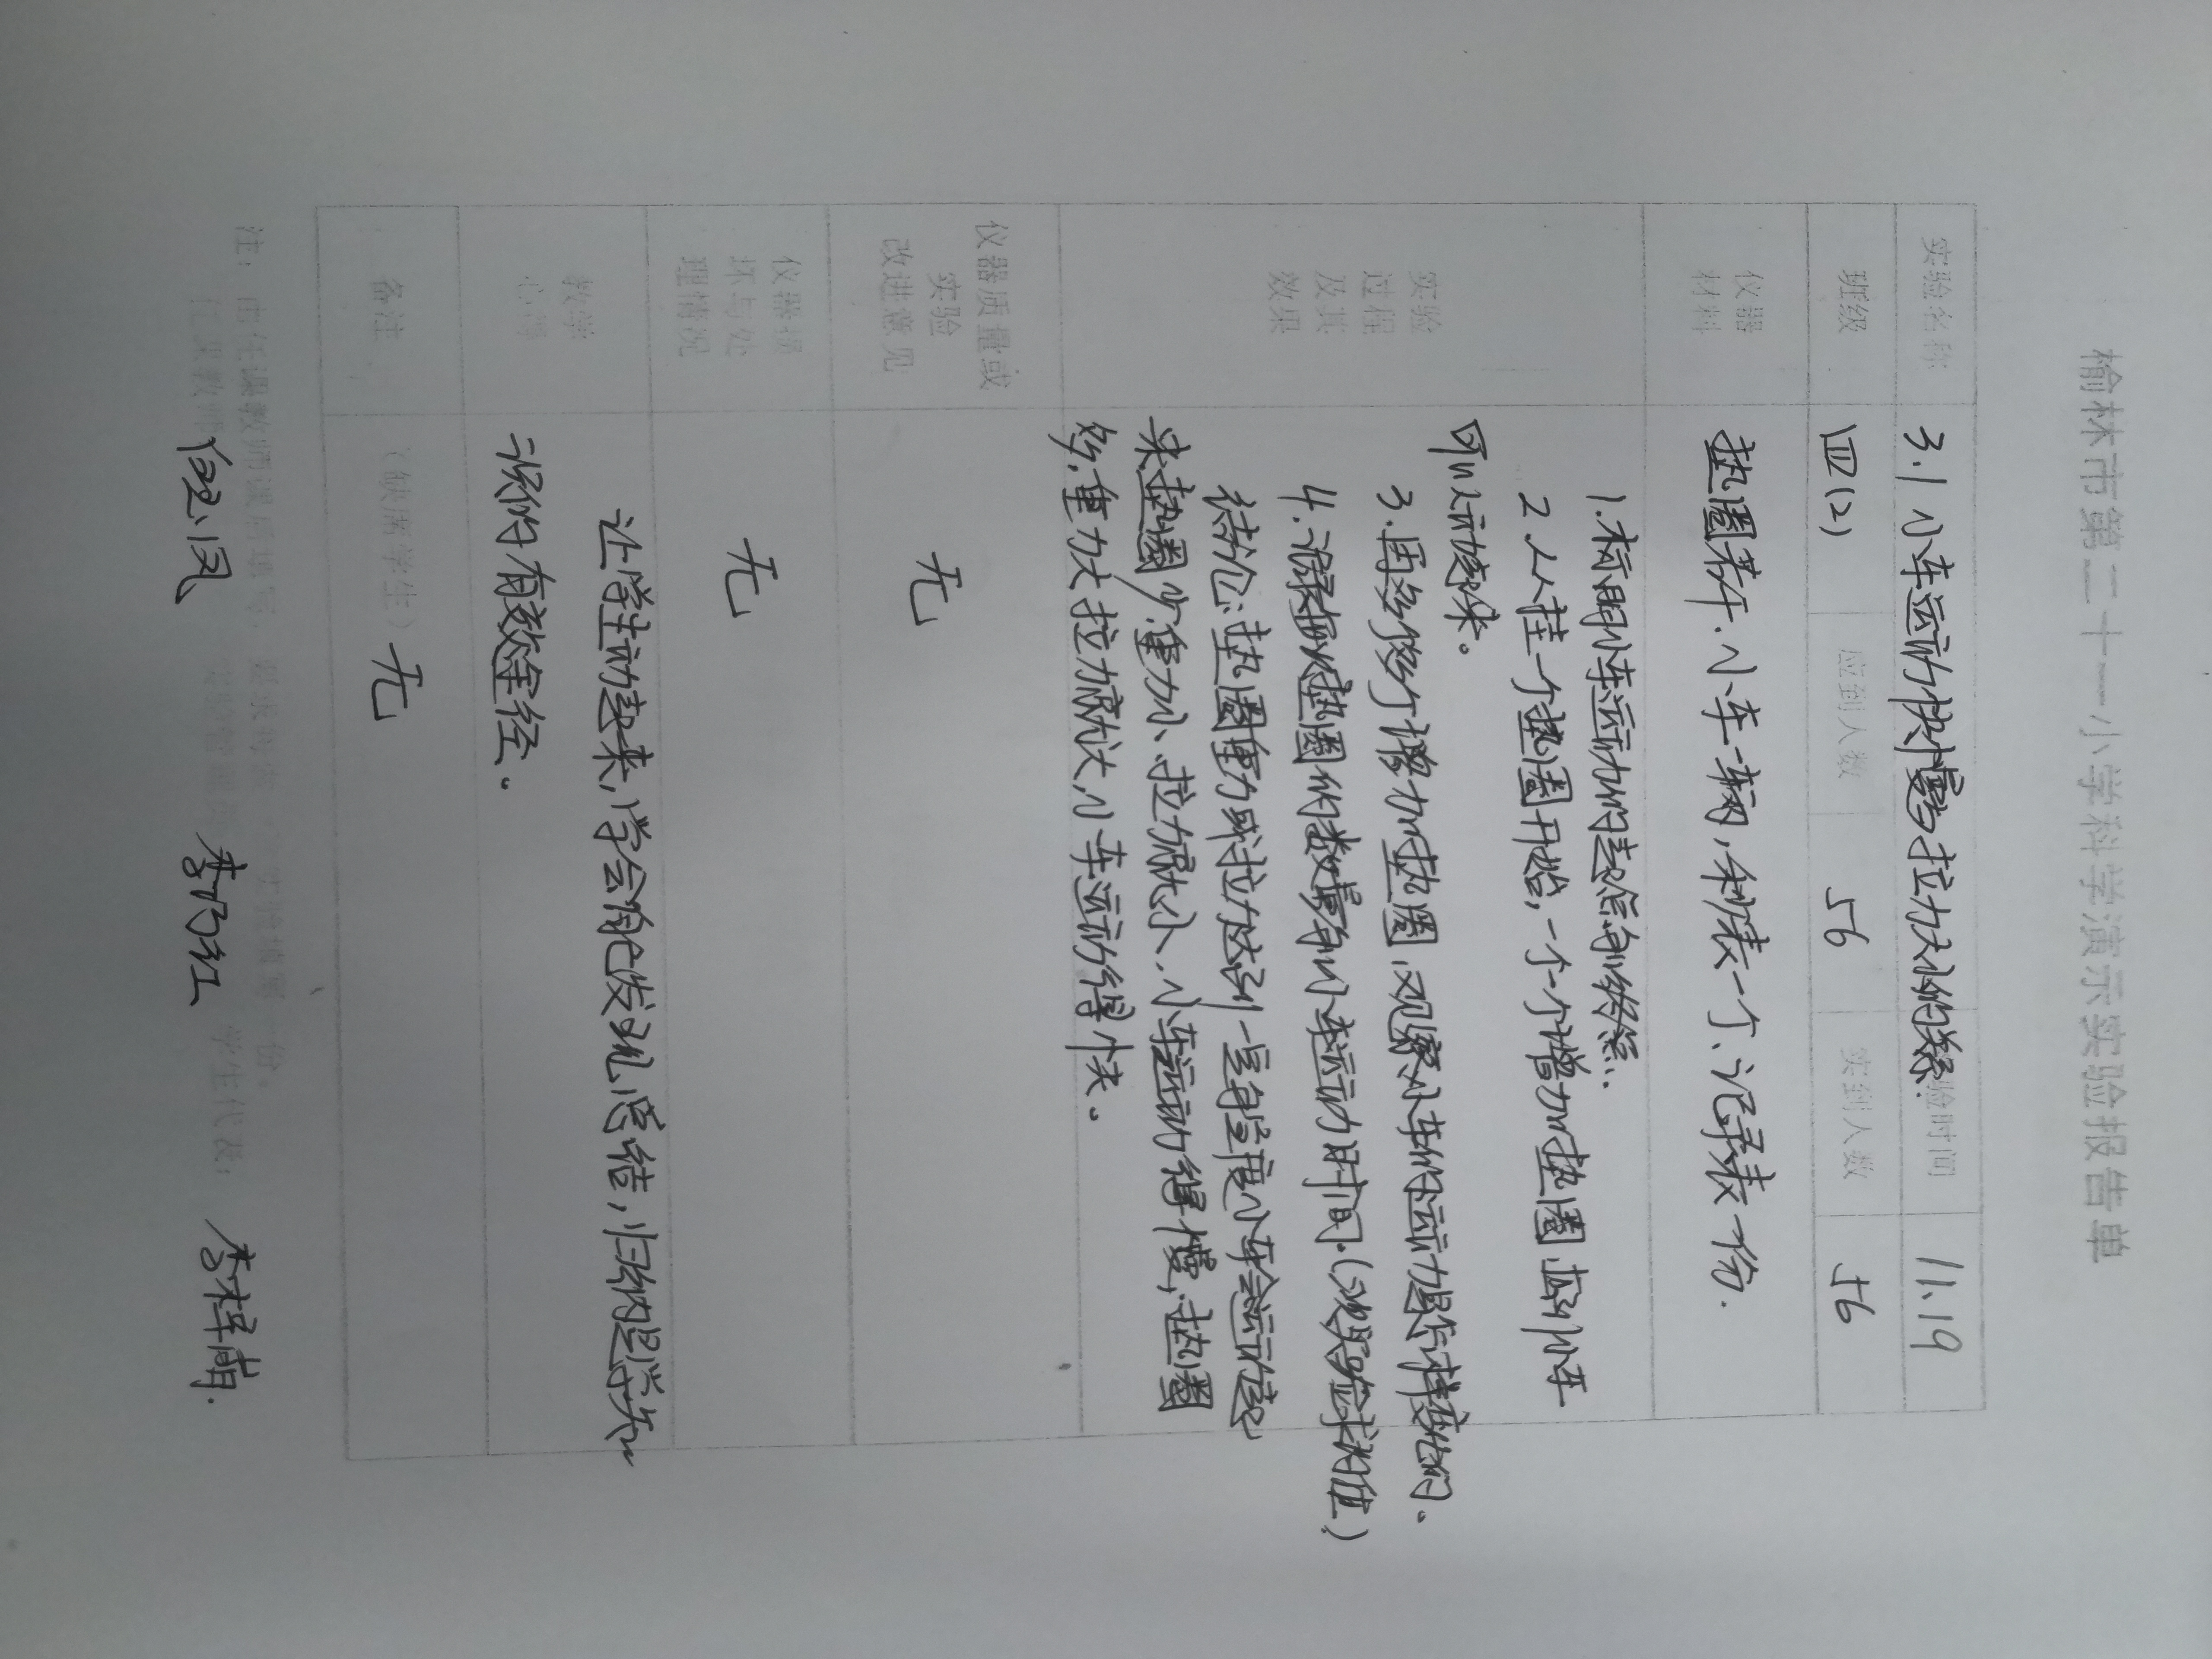 榆林市第二十一小学科学演示实验报告单
实验名称 3.1 小车运动快慢与拉力大小的关系 实验时间 11.19
班级 四(2) 应到人数 56 实到人数 56
仪器材料 垫圈若干、小车一辆,秒表一个、记录表一份.
实验过程及其效果
1.标明小车运动的起点与终点.
2.从挂一个垫圈开始,一个个增加垫圈,直到小车
可以运动起来。
3.再多次多个增加垫圈,观察小车的运动是怎样变化的.
4.记录每次垫圈的数量与小车运动时间.(3次实验求均值)
结论:垫圈重力或拉力达到一定程度小车会运动起
来,垫圈少,重力小、拉力就小、小车运动得慢,垫圈
多,重力大,拉力就大,小车运动得快。
仪器质量或实验改进意见 无
仪器损坏与处理情况 无
教学心得
让学生动起来,学会自己发现,总结,归纳是学知
识的有效途径。
备注 (缺席学生) 无
注:由任课教师课后填写,
学生代表: 李梓萌.